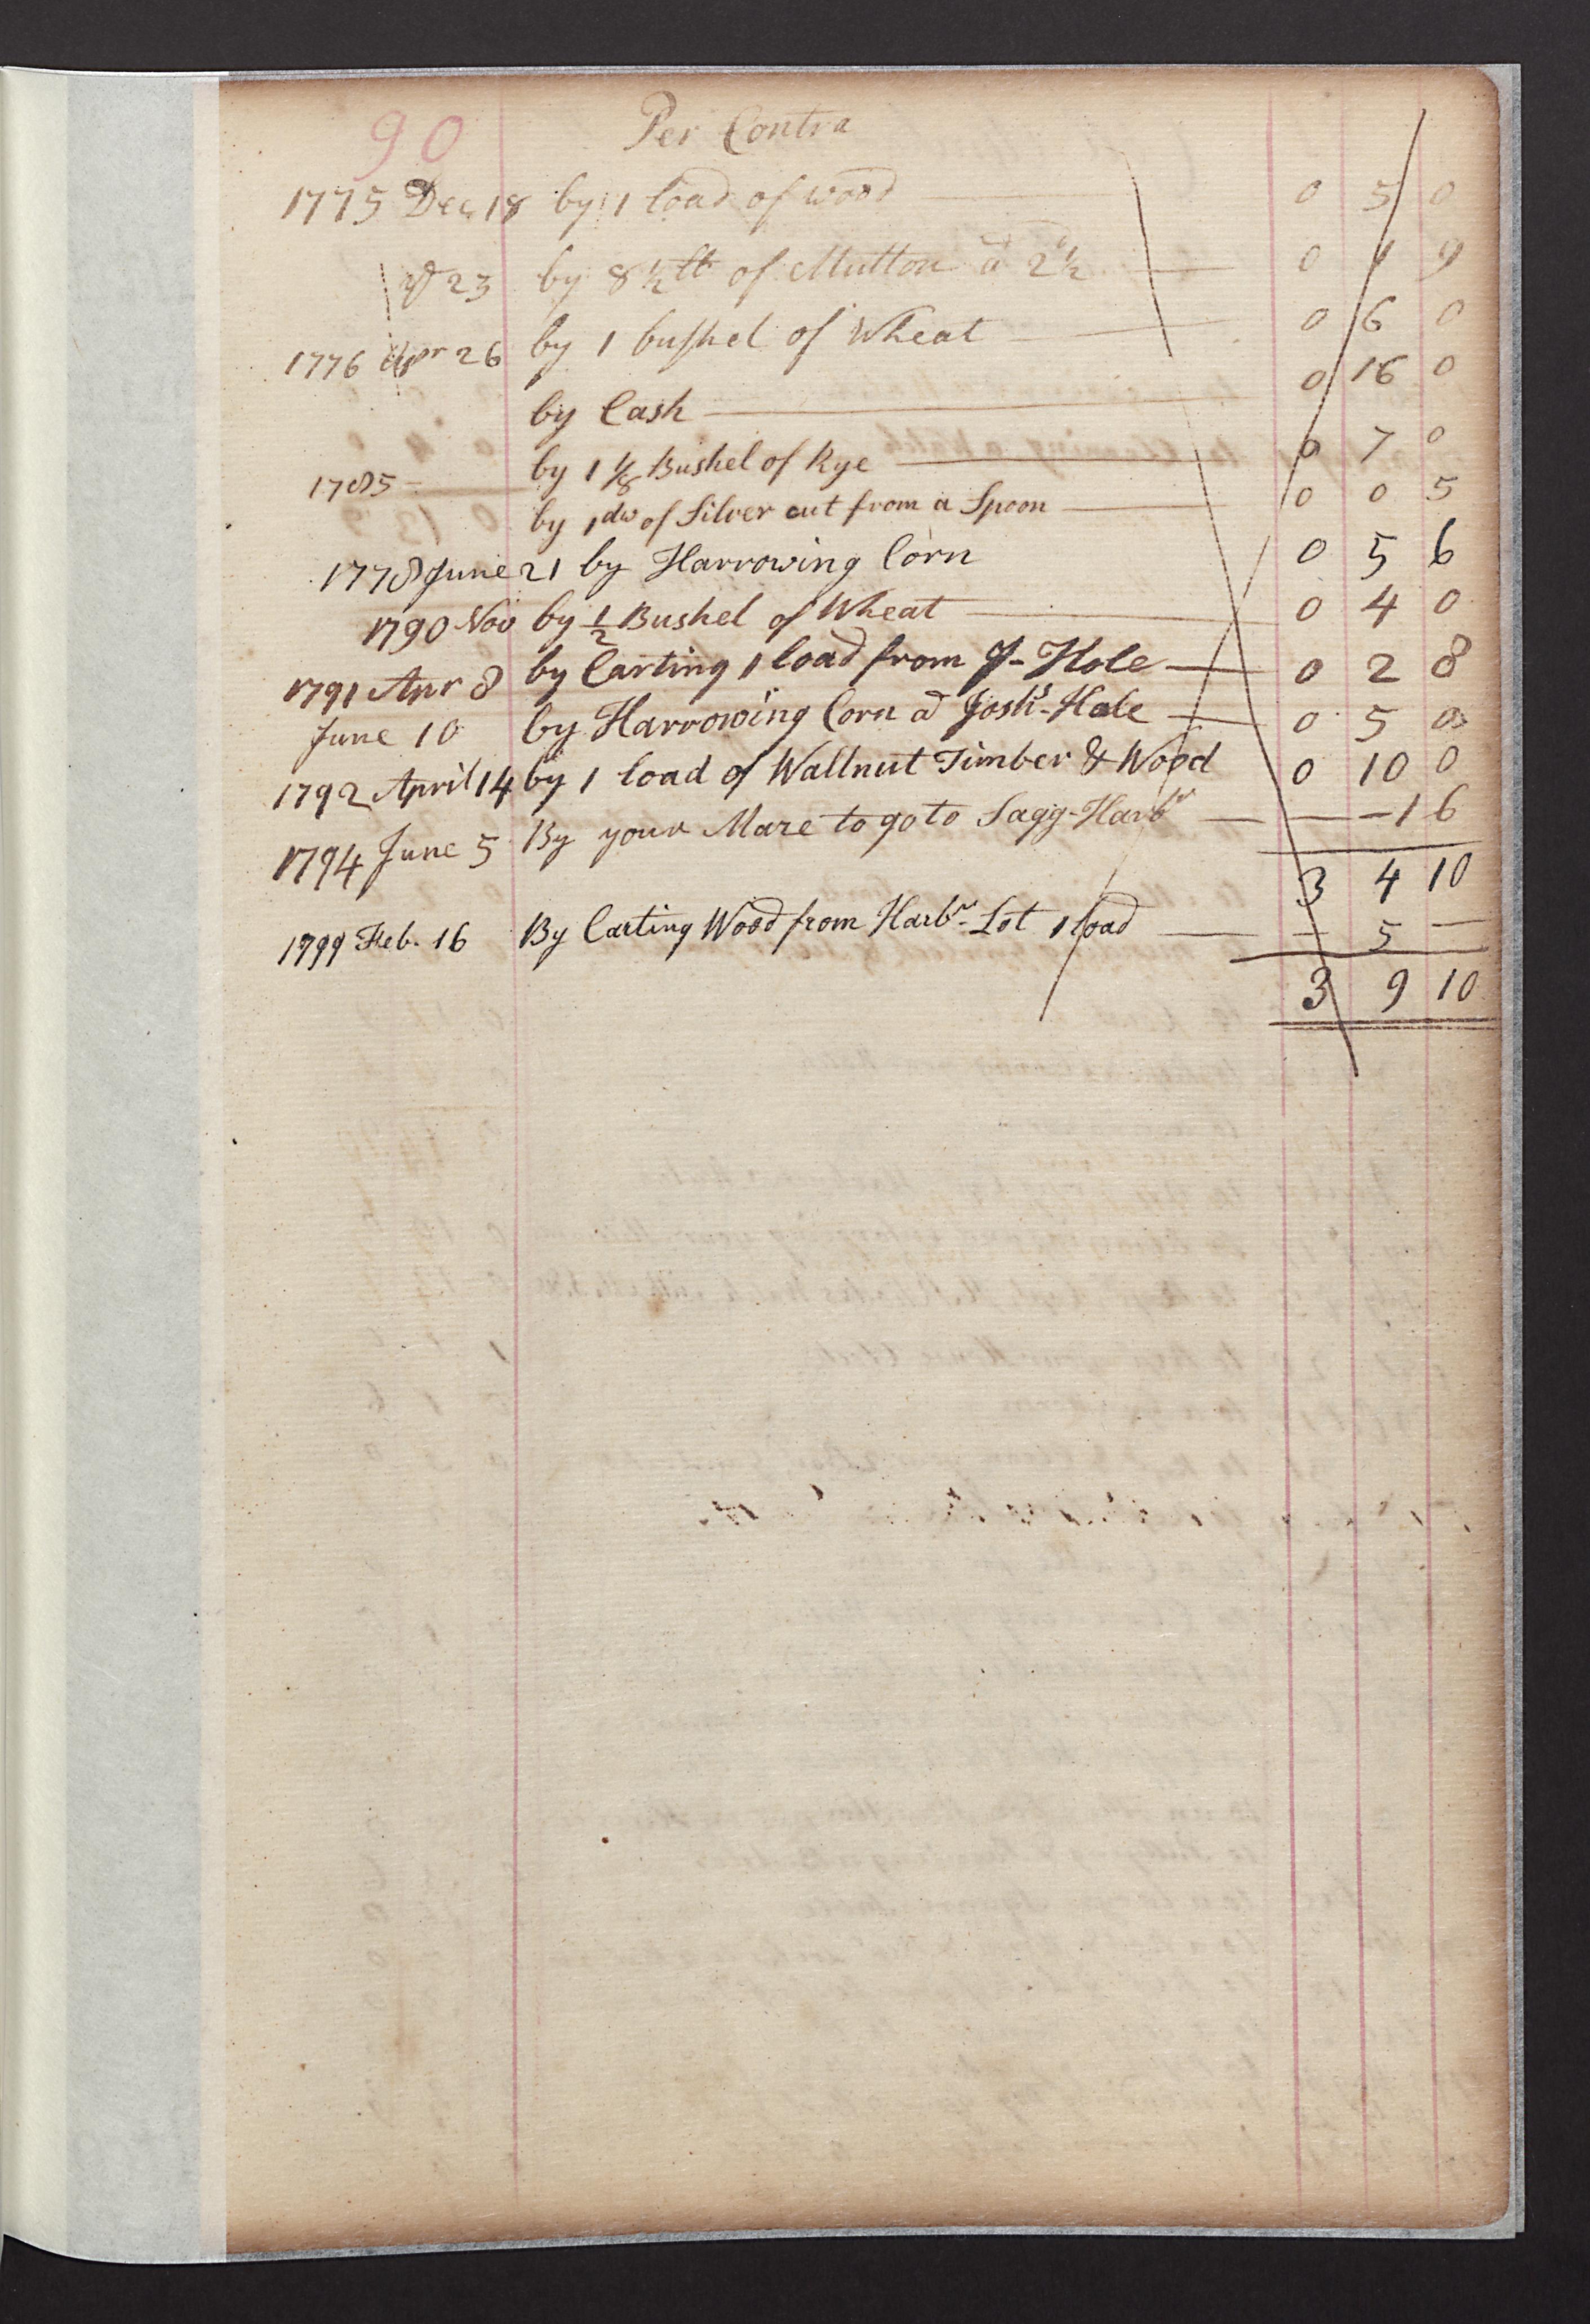 90 Per Contra
1775 Dec 18 by 1 load of wood 0 5 0
23 by 8 ½ lb of Mutton a 2 ½ 0 1 9
1776 Apr 26 by 1 bushel of Wheat 0 6 0
by Cash 0 16 0
1785 by 1 ⅛ Bushel of Rye 0 7 0
by 1 dw of Silver cut from a Spoon 0 0 5
1778 June 21 by Harrowing Corn 0 5 6
1790 Nov by ½ Bushel of Wheat 0 4 0
1791 Apr 8 by Carting 1 load from J-Hole 0 2 8
June 10 by Harrowing Corn a Josh's-Hole 0 5 0
1792 April 14 by 1 load of Wallnut Timber & Wood 0 10 0
1794 June 5 By your Mare to go to Sagg-Harbr — — 1 6
3 4 10
1799 Feb. 16 By Carting Wood from Harbr- Lot 1 load — 5 —
3 9 10